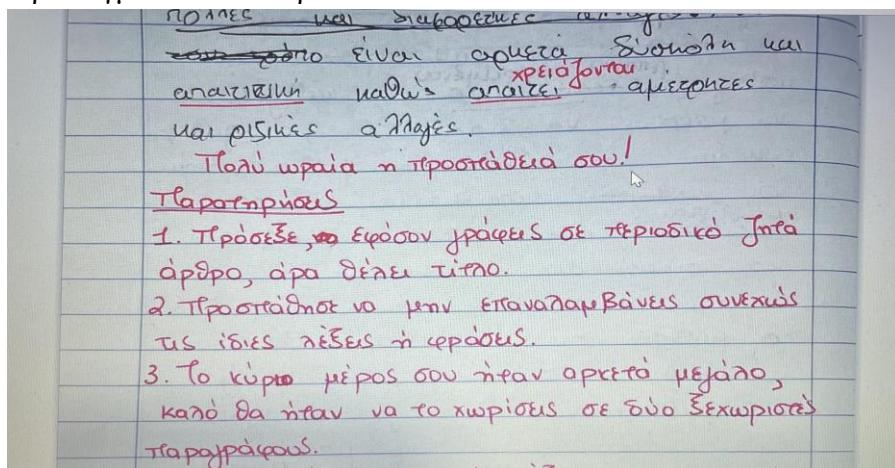 πολλές και διαφορετικές
είναι αρκετά δύσκολη και
χρειάζονται
απαιτητική καθώς απαιτεί αμέτρητες
και ριζικές αλλαγές.
Πολύ ωραία η προσπάθειά σου!
Παρατηρήσεις
1. Πρόσεξε, εφόσον γράφεις σε περιοδικό ζητά
άρθρο, άρα θέλει τίτλο.
2. Προσπάθησε να μην επαναλαμβάνεις συνεχώς
τις ίδιες λέξεις ή φράσεις.
3. Το κύριο μέρος σου ήταν αρκετά μεγάλο,
καλό θα ήταν να το χωρίσεις σε δύο ξεχωριστές
παραγράφους.